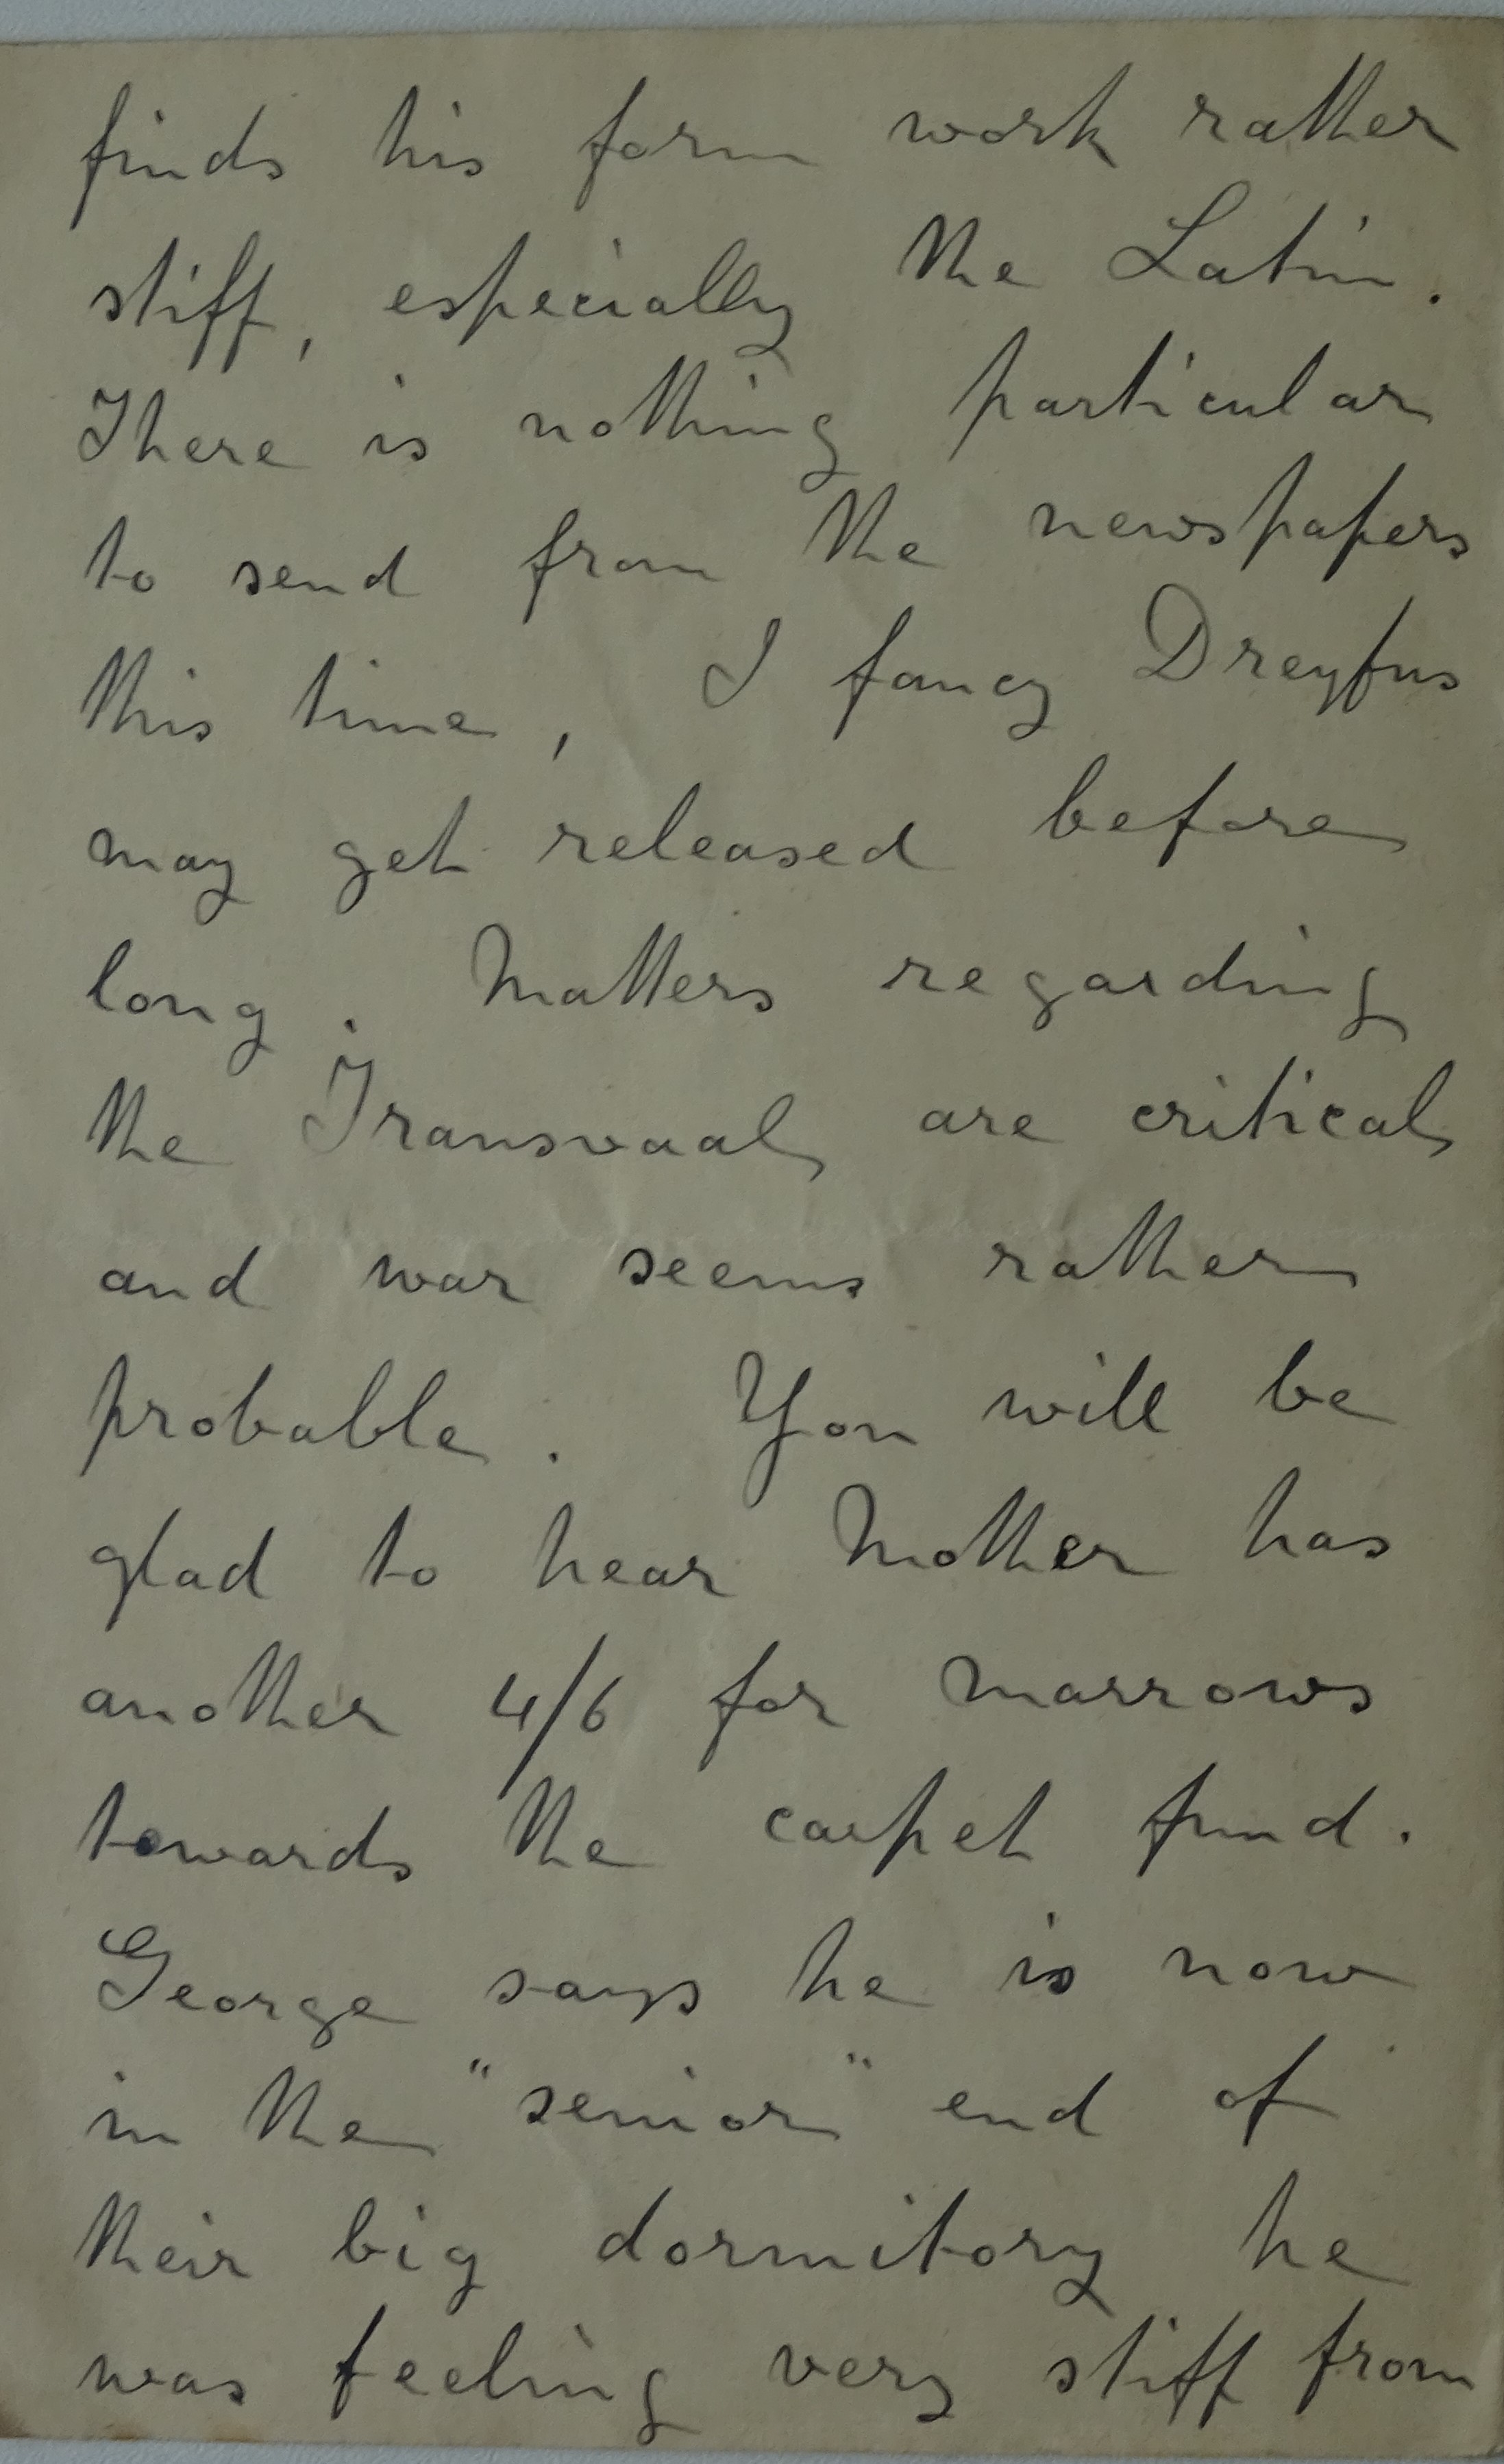 finds his form work rather
stiff, especially the Latin.
There is nothing particular
to send from the newspapers
this time, I fancy Dreyfus
may get released before
long. Matters regarding
the Transvaal are critical
and war seems rather
probable. You will be
glad to hear Mother has
another 4/6 for marrows
towards the carpet fund.
George says he is now
in the "senior" end of
their big dormitory he
was feeling very stiff from